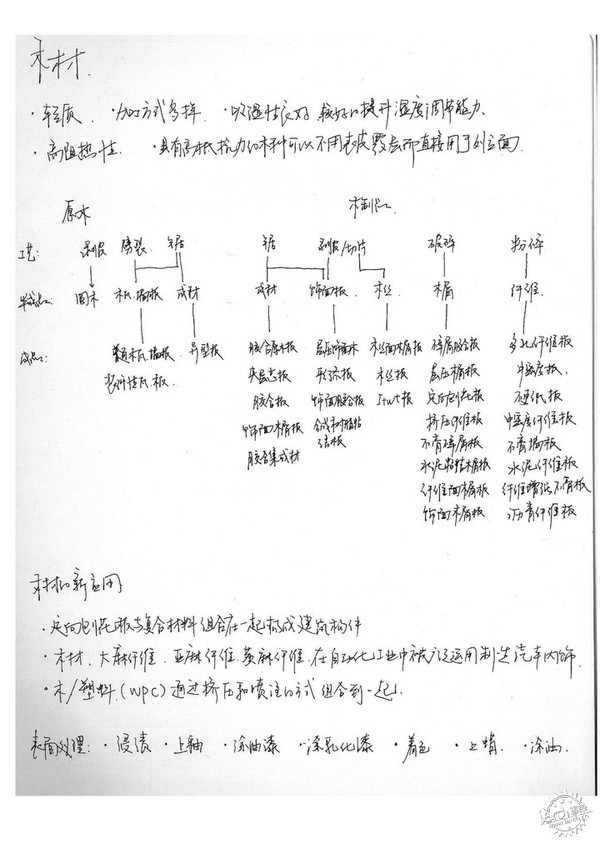 木材.
· 轻质. · 加工方式多样. · 吸湿性良好 较好的提升湿度调节能力.
· 高阻热性. · 具有高抵抗力的木种可以不用表皮覆层而直接用于外立面.
原木 木制品.
工艺: 剥皮 磨裂. 锯 锯 剥皮/切片 破碎 粉碎
半成品: 圆木 木瓦.墙板 成材 成材 饰面板. 木丝 木屑 纤维.
成品: 木瓦.墙板 异型板 胶合原木板 层压饰面木 木丝面木屑板 碎屑胶合板 多孔纤维板
装饰性瓦板. 夹层芯板 木丝板 层压木屑板 中密度板.
胶合板 饰面胶合板 定向刨花板 硬纸板
饰面木屑板 合成树脂粘 挤压纤维板 中密度纤维板
胶合集成材 结板 石膏碎屑板 石膏墙面板
水泥粘结木屑板 水泥纤维板
纤维面木屑板 纤维增强石膏板
饰面木屑板 沥青纤维板
木材的新应用
· 定向刨花板与复合材料组合在一起构成建筑构件
· 木材、大麻纤维、亚麻纤维、黄麻纤维.在自动化工业中被广泛运用制造汽车内饰.
· 木/塑料.(WPC)通过挤压和喷注的方式组合到一起.
表面处理: · 浸渍 · 上釉 · 涂油漆 · 涂乳化漆 · 着色 · 上蜡. · 涂油.